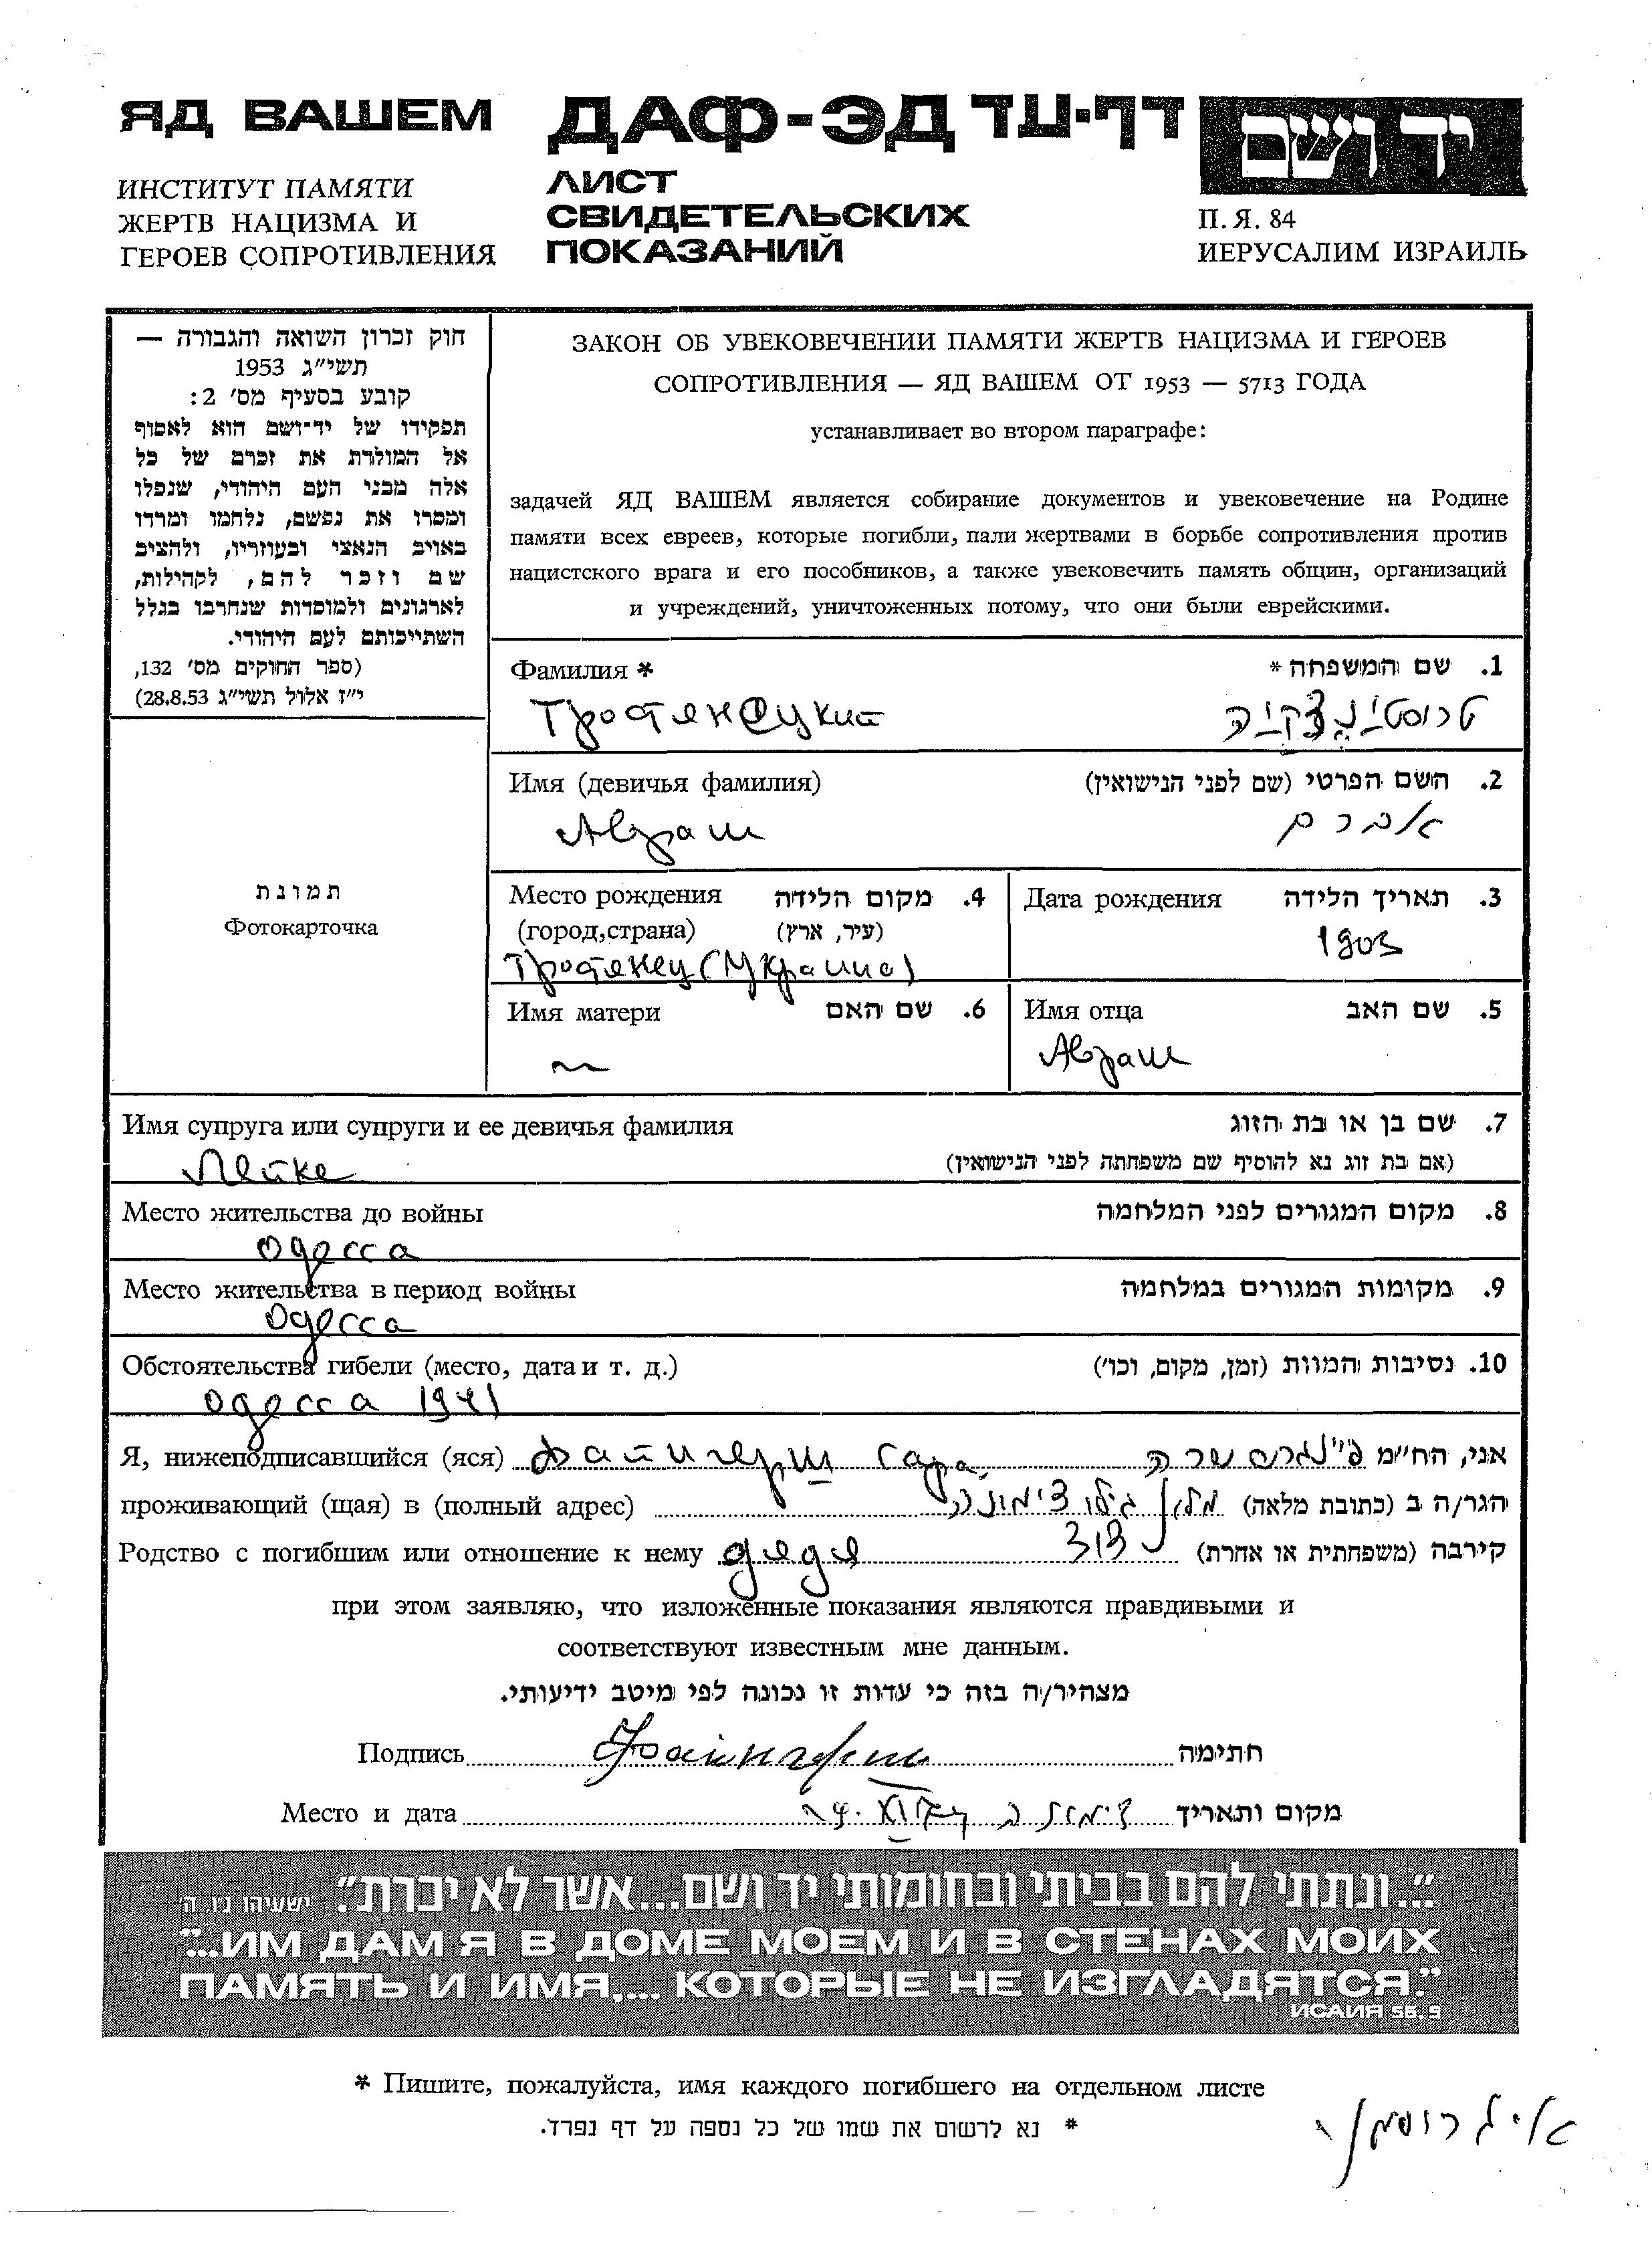 ЯД ВАШЕМ
ИНСТИТУТ ПАМЯТИ
ЖЕРТВ НАЦИЗМА И
ГЕРОЕВ СОПРОТИВЛЕНИЯ
ДАФ-ЭД דף-עד
ЛИСТ
СВИДЕТЕЛЬСКИХ
ПОКАЗАНИЙ
יד ושם
П. Я. 84
ИЕРУСАЛИМ ИЗРАИЛЬ
חוק זכרון השואה והגבורה —
תשי״ג 1953
קובע בסעיף מס׳ 2:
תפקידו של יד־ושם הוא לאסוף
אל המולדת את זכרם של כל
אלה מבני העם היהודי, שנפלו
ומסרו את נפשם, נלחמו ומרדו
באויב הנאצי ובעוזריו, ולהציב
שם וזכר להם, לקהילות,
לארגונים ולמוסדות שנחרבו בגלל
השתייכותם לעם היהודי.
(ספר החוקים מס׳ 132,
י״ז אלול תשי״ג 28.8.53)
ЗАКОН ОБ УВЕКОВЕЧЕНИИ ПАМЯТИ ЖЕРТВ НАЦИЗМА И ГЕРОЕВ
СОПРОТИВЛЕНИЯ — ЯД ВАШЕМ ОТ 1953 — 5713 ГОДА
устанавливает во втором параграфе:
задачей ЯД ВАШЕМ является собирание документов и увековечение на Родине
памяти всех евреев, которые погибли, пали жертвами в борьбе сопротивления против
нацистского врага и его пособников, а также увековечить память общин, организаций
и учреждений, уничтоженных потому, что они были еврейскими.
תמונת
Фотокарточка
Фамилия * 1. שם המשפחה *
Тростянецкий
Имя (девичья фамилия) 2. השם הפרטי (שם לפני הנישואין)
Аврам אברם
Место рождения 4. מקום הלידה
(город,страна) (עיר, ארץ)
Тростянец (Украина)
Дата рождения 3. תאריך הלידה
1903
Имя матери 6. שם האם
~
Имя отца 5. שם האב
Аврам
Имя супруга или супруги и ее девичья фамилия 7. שם בן או בת הזוג
(אם בת זוג נא להוסיף שם משפחתה לפני הנישואין)
Лейке
Место жительства до войны 8. מקום המגורים לפני המלחמה
Одесса
Место жительства в период войны 9. מקומות המגורים במלחמה
Одесса
Обстоятельства гибели (место, дата и т. д.) 10. נסיבות המוות (זמן, מקום, וכו׳)
Одесса 1941
Я, нижеподписавшийся (яся) Файнгерш Сара אני, הח״מ פיינגרש שרה
проживающий (щая) в (полный адрес) הגר/ה ב (כתובת מלאה) מלון גילו דימונה
Родство с погибшим или отношение к нему дядя קירבה (משפחתית או אחרת) דוד
при этом заявляю, что изложенные показания являются правдивыми и
соответствуют известным мне данным.
מצהיר/ה בזה כי עדות זו נכונה לפי מיטב ידיעותי.
Подпись Файнгерш חתימה
Место и дата מקום ותאריך דימונה
״...ונתתי להם בביתי ובחומותי יד ושם...אשר לא יכרת״. ישעיהו נ״ו ה׳
"...ИМ ДАМ Я В ДОМЕ МОЕМ И В СТЕНАХ МОИХ
ПАМЯТЬ И ИМЯ.... КОТОРЫЕ НЕ ИЗГЛАДЯТСЯ."
ИСАИЯ 56.5
* Пишите, пожалуйста, имя каждого погибшего на отдельном листе
* נא לרשום את שמו של כל נספה על דף נפרד.